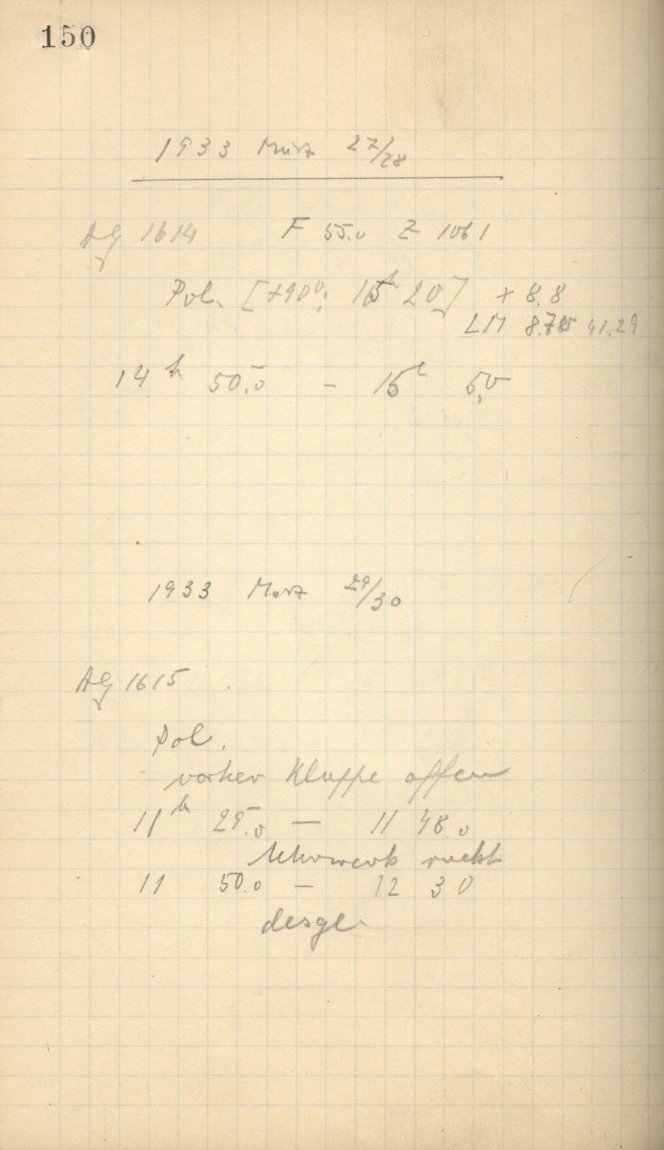 150
1933 März 27/28
AG 1614 F 55.0 Z 1061
Pol. [+90°; 15h 20] + 8.8
LM 41.29
14h 50.0 — 15h 5.0
1933 März 29/30
AG 1615
Pol.
vorher Klappe offen
11h 25.0 — 11 48.0
Uhrwerk ruckt
11 50.0 — 12 30
desgl.